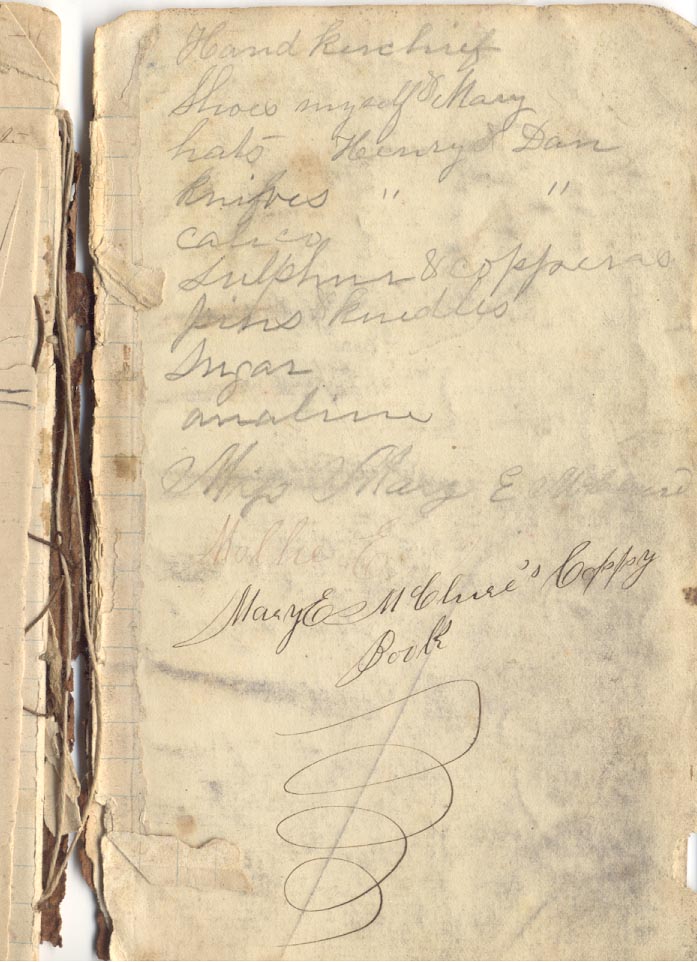 Handkerchief
Shoes myself & Mary
hats Henry & Dan
knifves " "
calico
Sulphur & copperas
pins & kneedles
Sugar
analine
Miss Mary E McClure
Mollie E
Mary E McClure's Coppy
Book